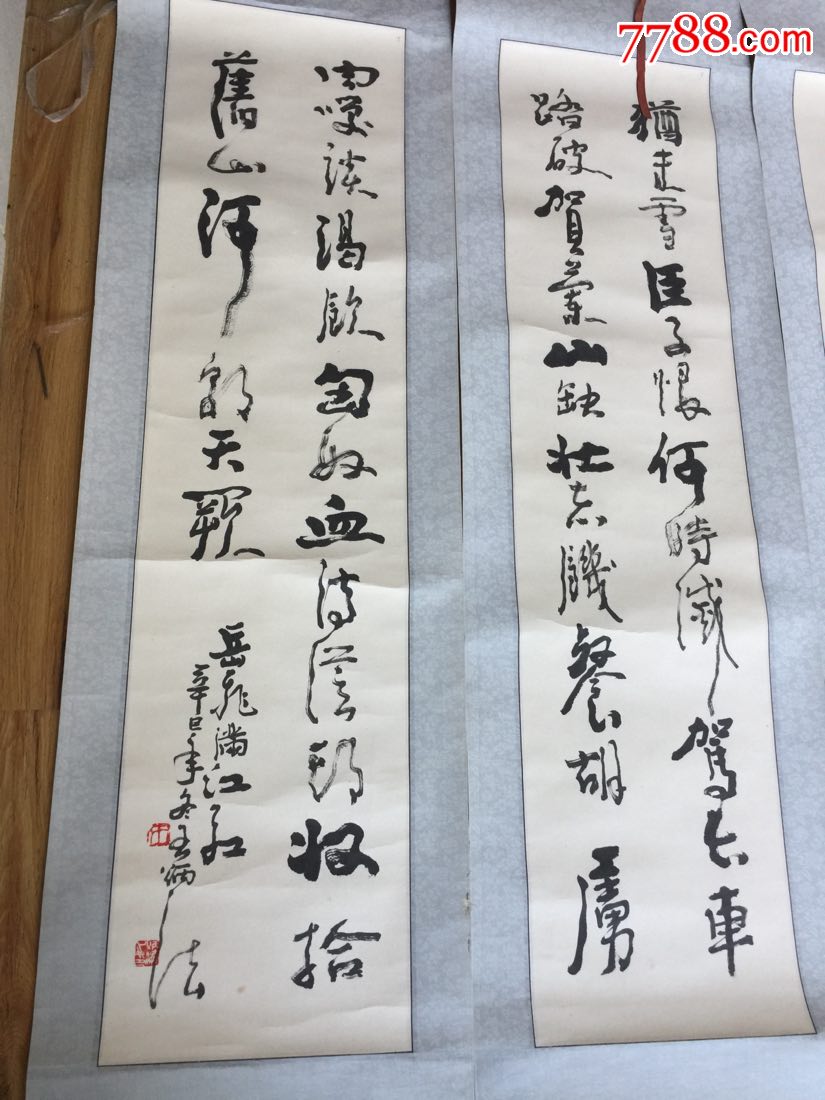 7788.com
猶未雪臣子恨何時滅駕長車
踏破賀蘭山缺壯志饑餐胡虜
肉笑談渴飲匈奴血待從頭收拾
舊山河朝天闕
岳飛滿江紅
辛巳年冬王炳法